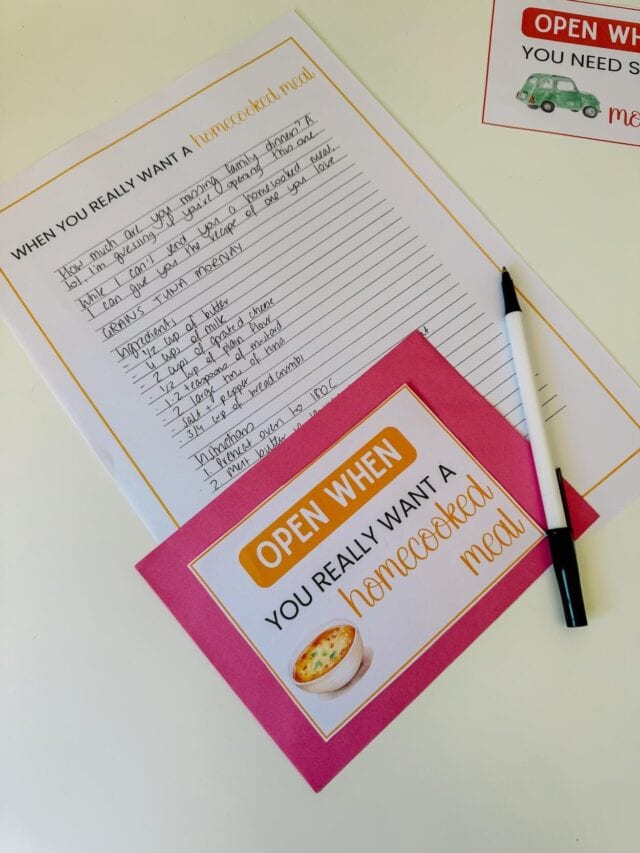 OPEN WH
YOU NEED S
mo
WHEN YOU REALLY WANT A homecooked meal
How much are you missing family dinners? A
lot, I'm guessing if you're opening this one
While I can't send you a homecooked meal,
I can give you the recipe of one you love
GRAINS TUNA MORNAY
Ingredients
- 1/2 cup of butter
- 4 cups of milk
- 2 cups of grated cheese
- 1/2 cup of plain flour
- 1-2 teaspoons of mustard
- 2 large tins of tuna
- salt + pepper
- 3/4 cup of breadcrumbs
Instructions
1. Preheat oven to 180C
2. Melt butter in
OPEN WHEN
YOU REALLY WANT A
homecooked
meal